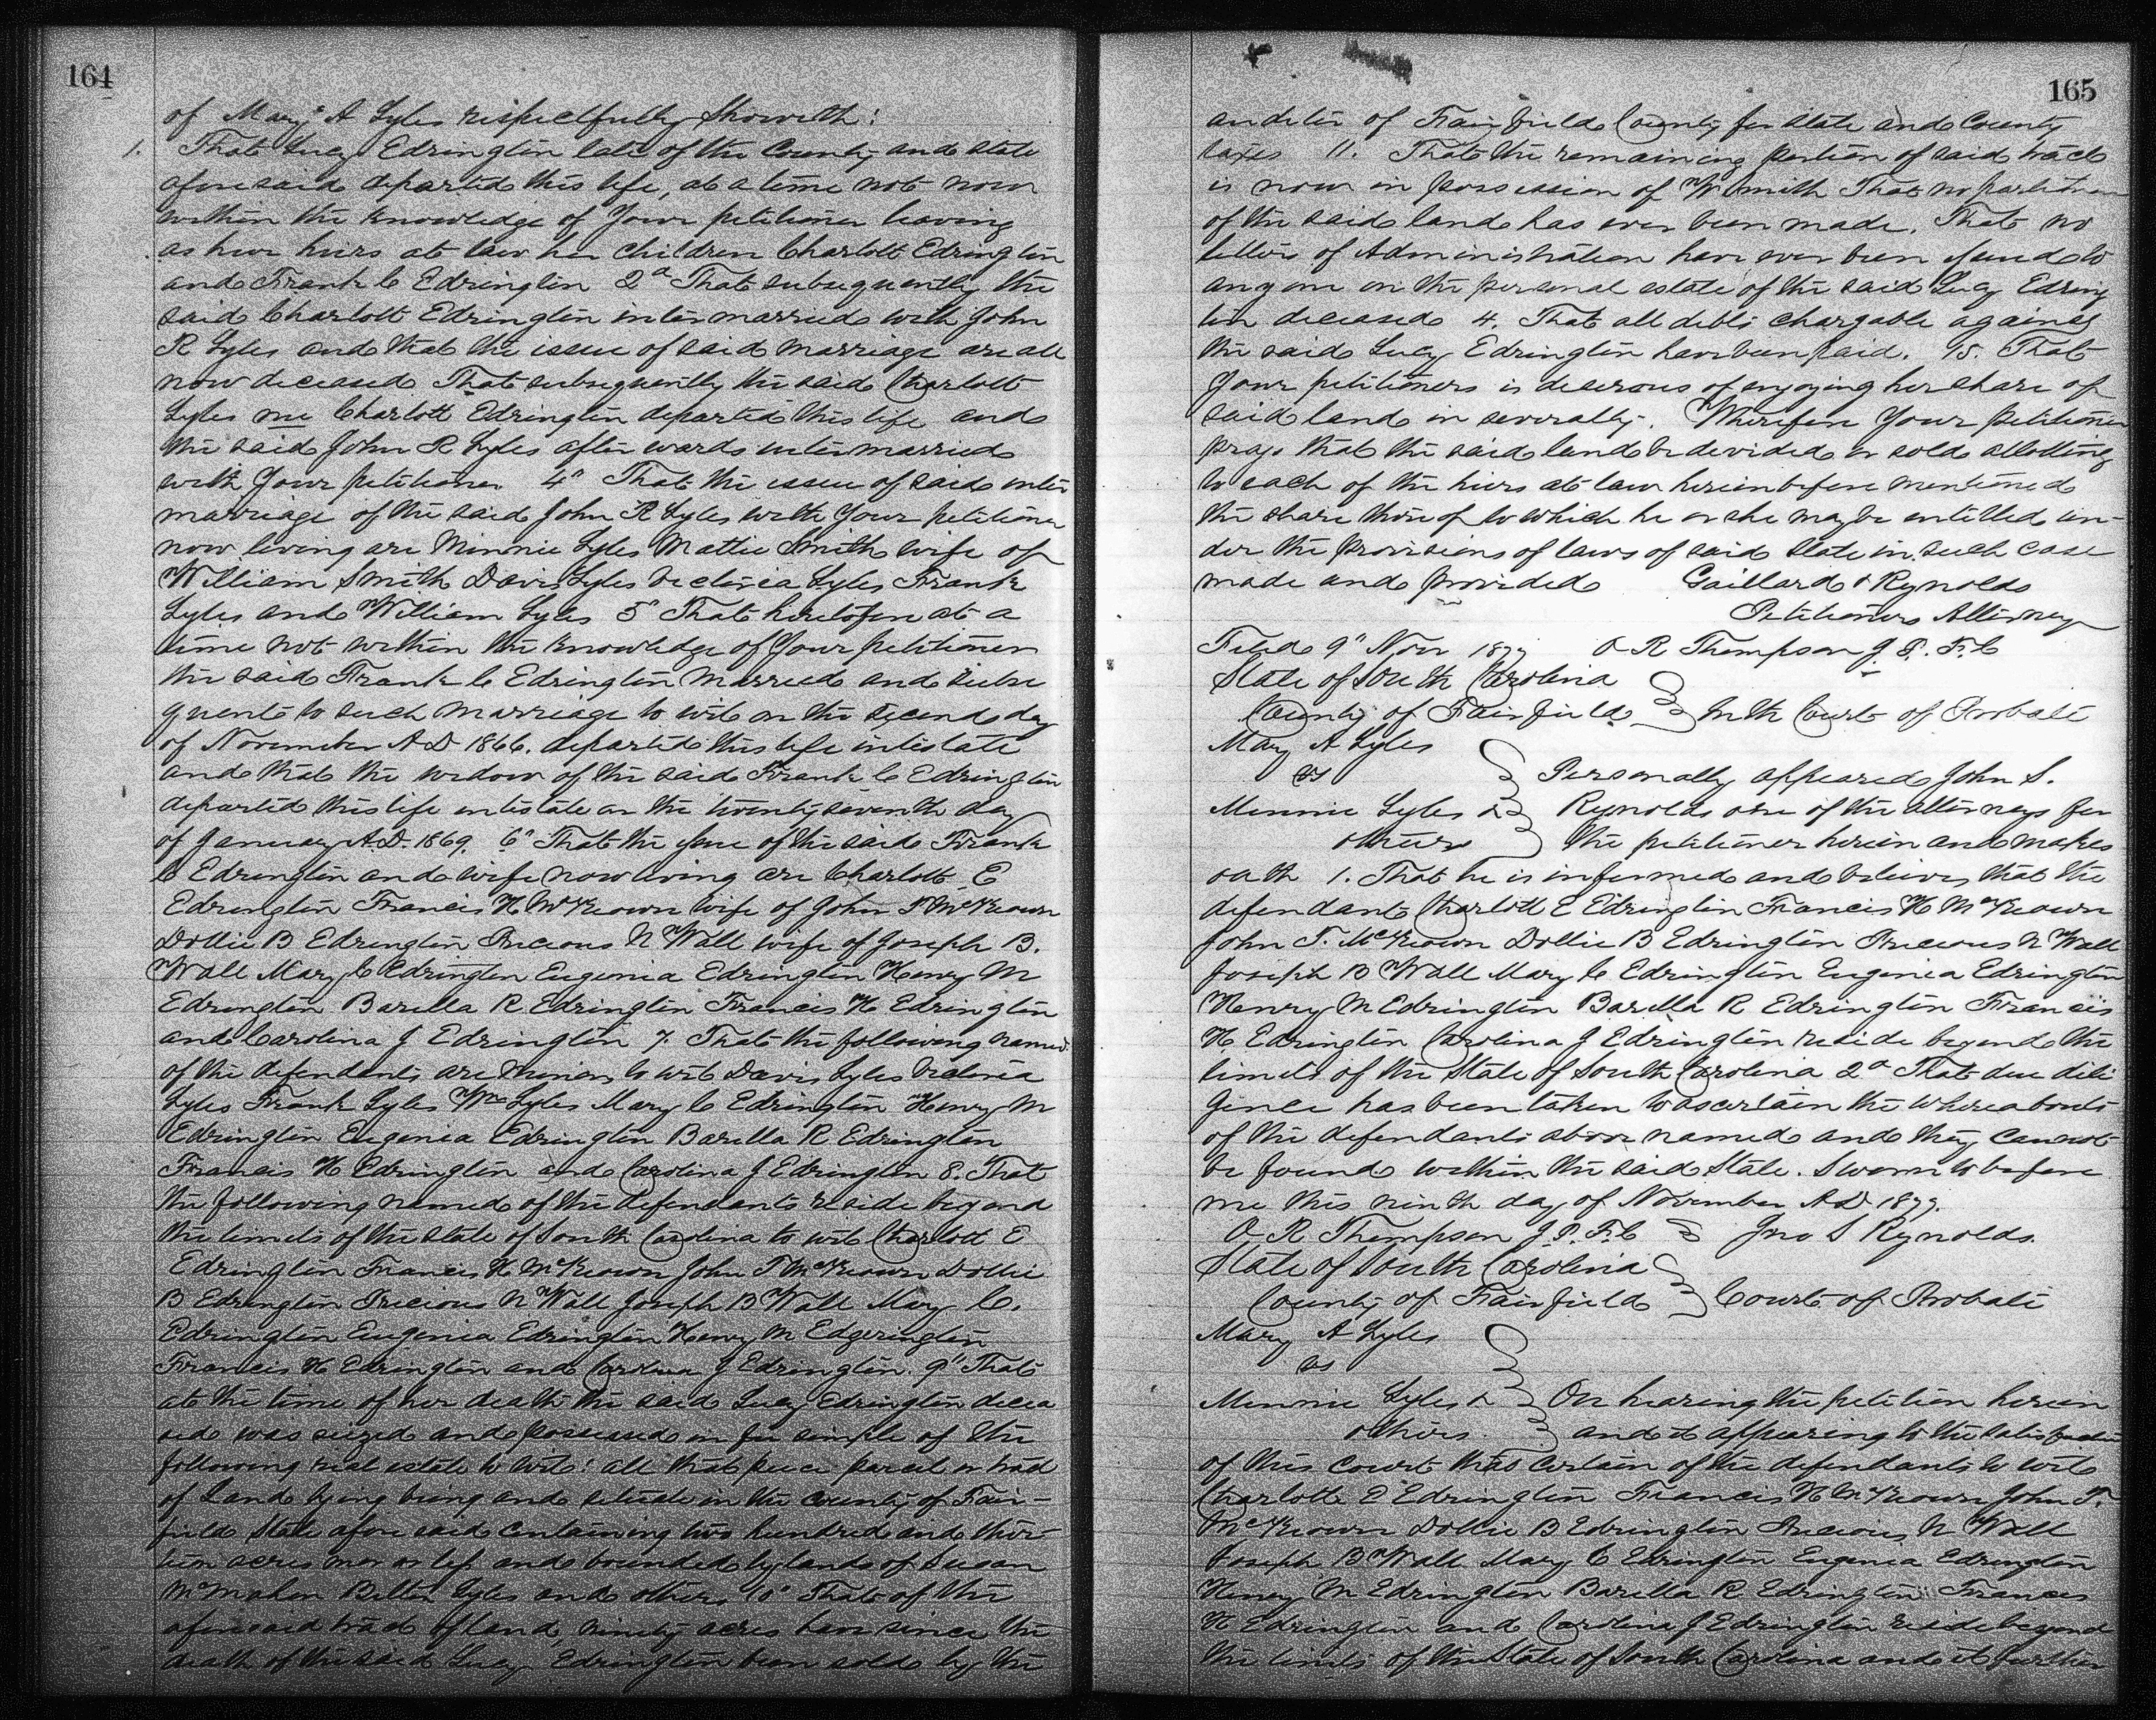 164
of Mary A Lyles respectfully Showeth:
1. That Lucy Edrington late of the County and state
aforesaid departed this life, at a time not now
within the knowledge of Your petitioner leaving
as her heirs at law her children Charlott Edrington
and Frank C Edrington 2d That subsequently the
said Charlott Edrington intermarried with John
R Lyles and that the issue of said marriage are all
now deceased That subsequently the said Charlott
Lyles nee Charlott Edrington departed this life and
the said John R Lyles after wards intermarried
with Your petitioner 4" That the issue of said inter
marriage of the said John R Lyles with Your petitioner
now living are Minnie Lyles Mattie Smith wife of
William Smith Davis Lyles Victoria Lyles Frank
Lyles and William Lyles 5" That heretofore at a
time not within the knowledge of Your petitioner
the said Frank C Edrington Married and subse
quent to such marriage to wit on the second day
of November A D 1866. departed this life intestate
and that the widow of the said Frank C Edrington
departed this life intestate on the twenty seventh day
of January A.D. 1869. 6" That the issue of the said Frank
C Edrington and wife now living are Charlott E
Edrington Francis H McKeown wife of John T McKeown
Dollie B Edrington Precious N Wall wife of Joseph B.
Wall Mary C Edrington Eugenia Edrington Henry M
Edrington Barilla R Edrington Francis H Edrington
and Carolina J Edrington 7. That the following named
of the defendants are Minors to wit Davis Lyles Victoria
Lyles Frank Lyles Wm Lyles Mary C Edrington Henry M
Edrington Eugenia Edrington Barilla R Edrington
Francis H Edrington and Carolina J Edrington 8. That
the following named of the defendants reside beyond
the limits of the state of South Carolina to wit Charlott E
Edrington Francis H McKeown John T McKeown Dollie
B Edrington Precious N Wall Joseph B Wall Mary C.
Edrington Eugenia Edrington Henry M Edgerington
Francis H Edrington and Carolina J Edrington. 9" That
at the time of her death the said Lucy Edrington decea
sed was seized and possessed in fee simple of the
following real estate to wit: all that piece parcel or trad
of Land lying being and situate in the county of Fair-
field State afore said containing two hundred and thir-
teen acres mor or less and bounded by lands of Susan
McMahon Belton Lyles and others 10" That of the
aforesaid trad of land, ninety acres have since the
death of the said Lucy Edrington been sold by the
165
auditor of Fairfield County for state and County
taxes 11. That the remaining portion of said tract
is now in possession of W Smith That no partition
of the said land has ever been made. That no
letters of Administration have ever been issued to
any one on the personal estate of the said Lucy Edring
ton deceased 4. That all debts chargable against
the said Lucy Edrington have been paid. 15. That
Your petitioners is desirous of enjoying her share of
said land in severalty. Wherefore Your petitioner
prays that the said land be devided or sold allotting
to each of the hiers at law hereinbefore mentioned
the share thereof to which he or she may be entitled un-
der the provisions of laws of said State in such case
made and provided Gaillard & Reynolds
Petitioners Attorney
Filed 9" Nov 1877 O R Thompson J. P. F. C
State of South Carolina
County of Fairfield In the Court of Probate
Mary A Lyles
vs Personally appeared John S.
Minnie Lyles & Reynolds one of the attorneys for
others the petitioner herein and makes
oath 1. That he is informed and believes that the
defendants Charlott E Edrington Francis H McKeown
John T. McKeown Dollie B Edrington Precious N Wall
Joseph B Wall Mary C Edrington Eugenia Edrington
Henry M Edrington Barilla R Edrington Francis
H Edrington Carolina J Edrington reside beyond the
limits of the State of South Carolina 2d That due dili
gence has been taken to ascertain the whereabouts
of the defendants above named and they cannot
be found within the said State. Sworn to before
me this ninth day of November A D 1877.
O R Thompson J. P. F. C Jno S Reynolds.
State of South Carolina
County of Fairfield Court of Probate
Mary A Lyles
vs
Minnie Lyles & On hearing the petition herein
others. and it appearing to the satisfaction
of this court that certain of the defendants to wit
Charlotte E Edrington Francis H McKeown John T.
McKeown Dollie B Edrington Precious N Wall
Joseph B Wall Mary C Edrington Eugenia Edrington
Henry M Edrington Barilla R Edrington Francis
H Edrington and Carolina J Edrington reside beyond
the limits of the State of South Carolina and it further